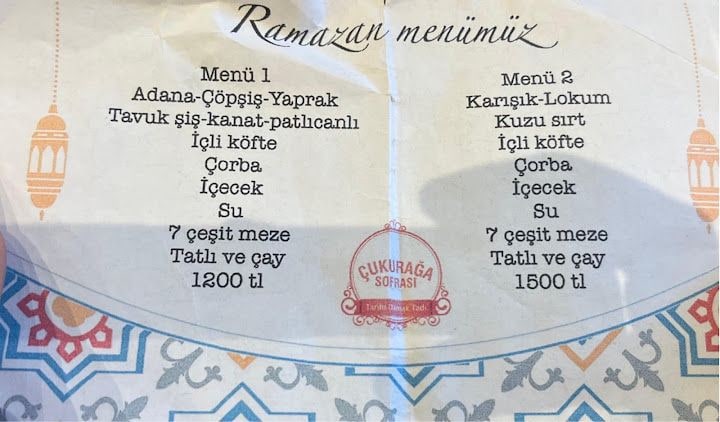 Ramazan menümüz
Menü 1
Adana-Çöpşiş-Yaprak
Tavuk şiş-kanat-patlıcanlı
İçli köfte
Çorba
İçecek
Su
7 çeşit meze
Tatlı ve çay
1200 tl
Menü 2
Karışık-Lokum
Kuzu sırt
İçli köfte
Çorba
İçecek
Su
7 çeşit meze
Tatlı ve çay
1500 tl
ÇUKURAĞA
SOFRASI
Tarihi Damak Tadı